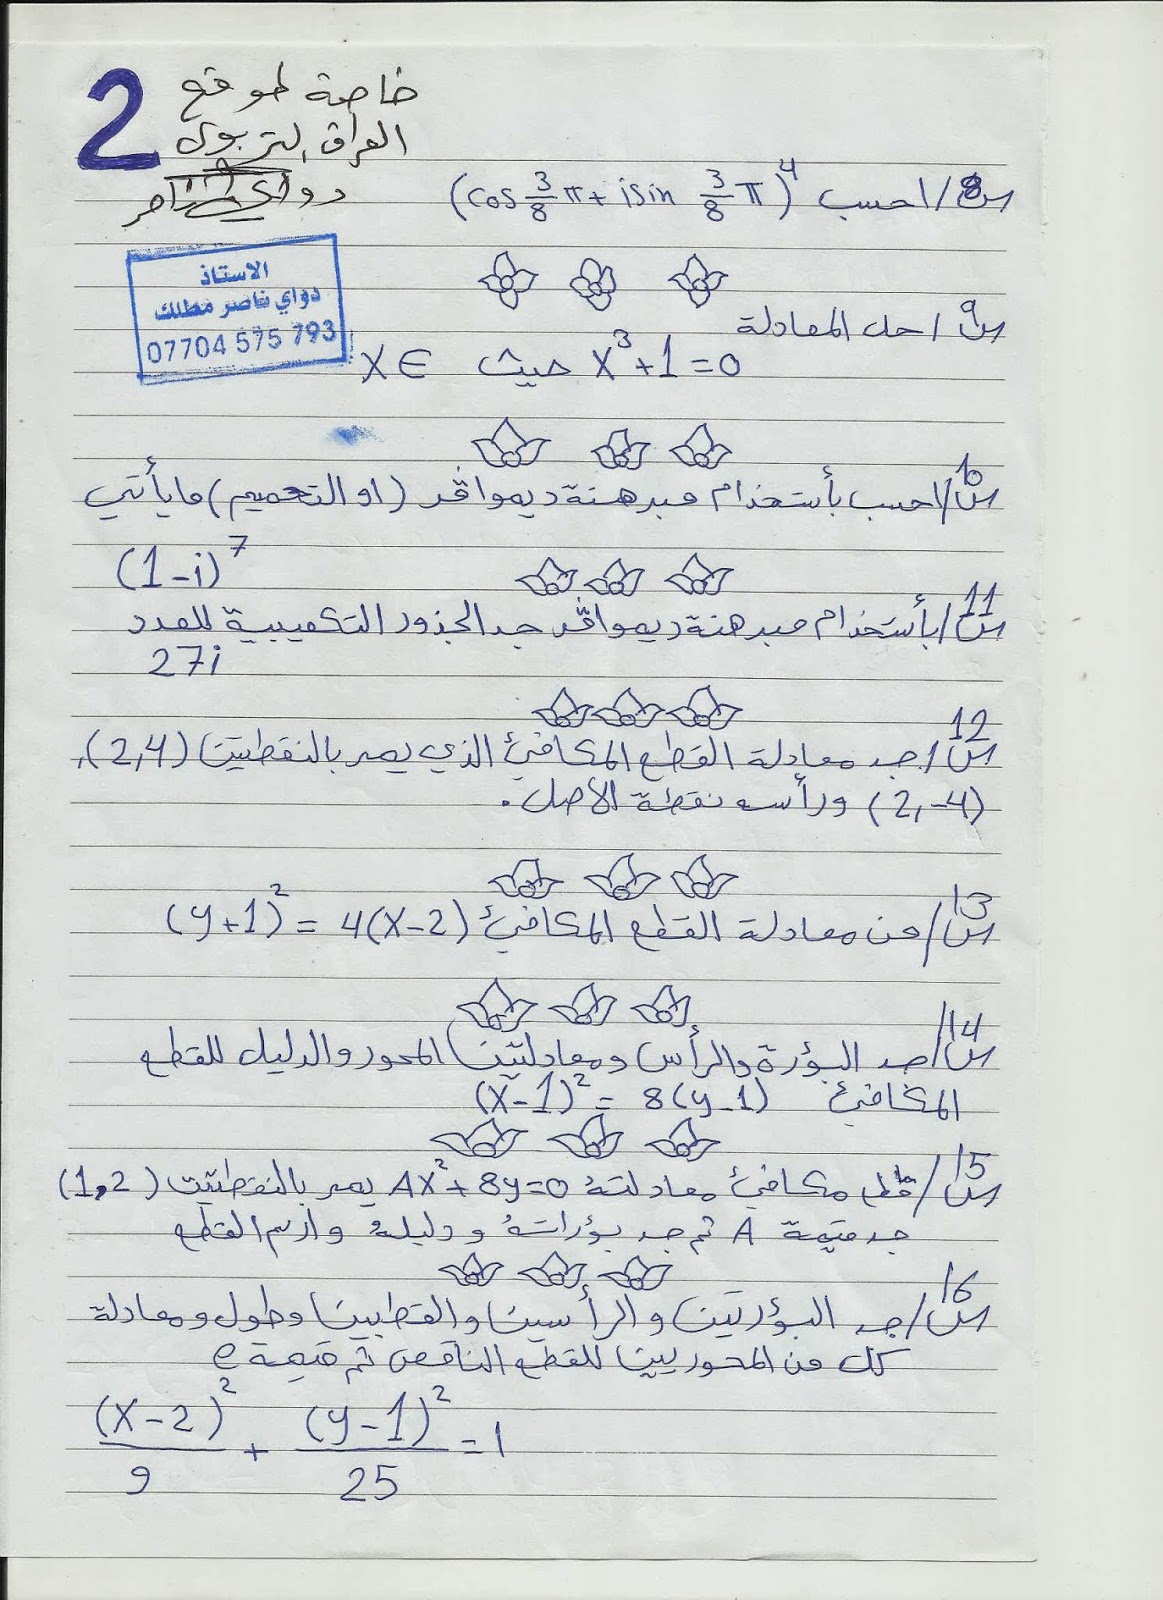 2
خاصة لموقع
العراق التربوي
دواي ناصر
الاستاذ
دواي ناصر مطلك
07704 575 793
س8/ احسب (cos 3/8 π + isin 3/8 π)^4
س9/ حل المعادلة
x^3+1=0 حيث X∈
س10/ احسب بأستخدام مبرهنة ديموافر (او التعميم) مايأتي
(1-i)^7
س11/ بأستخدام مبرهنة ديموافر جد الجذور التكعيبية للعدد
27i
س12/ جد معادلة القطع المكافئ الذي يمر بالنقطتين (2,4),
(2,-4) ورأسه نقطة الاصل.
س13/ من معادلة القطع المكافئ (y+1)^2 = 4(x-2)
س14/ جد البؤرة والرأس ومعادلتين المحور والدليل للقطع
المكافئ (x-1)^2 = 8(y-1)
س15/ قطع مكافئ معادلته Ax^2+8y=0 يمر بالنقطتين (1,2)
جد قيمة A ثم جد بؤراته ودليله وارسم القطع
س16/ جد البؤرتين والرأسين والقطبين وطول ومعادلة
كل من المحوريين للقطع الناقص ثم قيمة e
(x-2)^2/9 + (y-1)^2/25 = 1